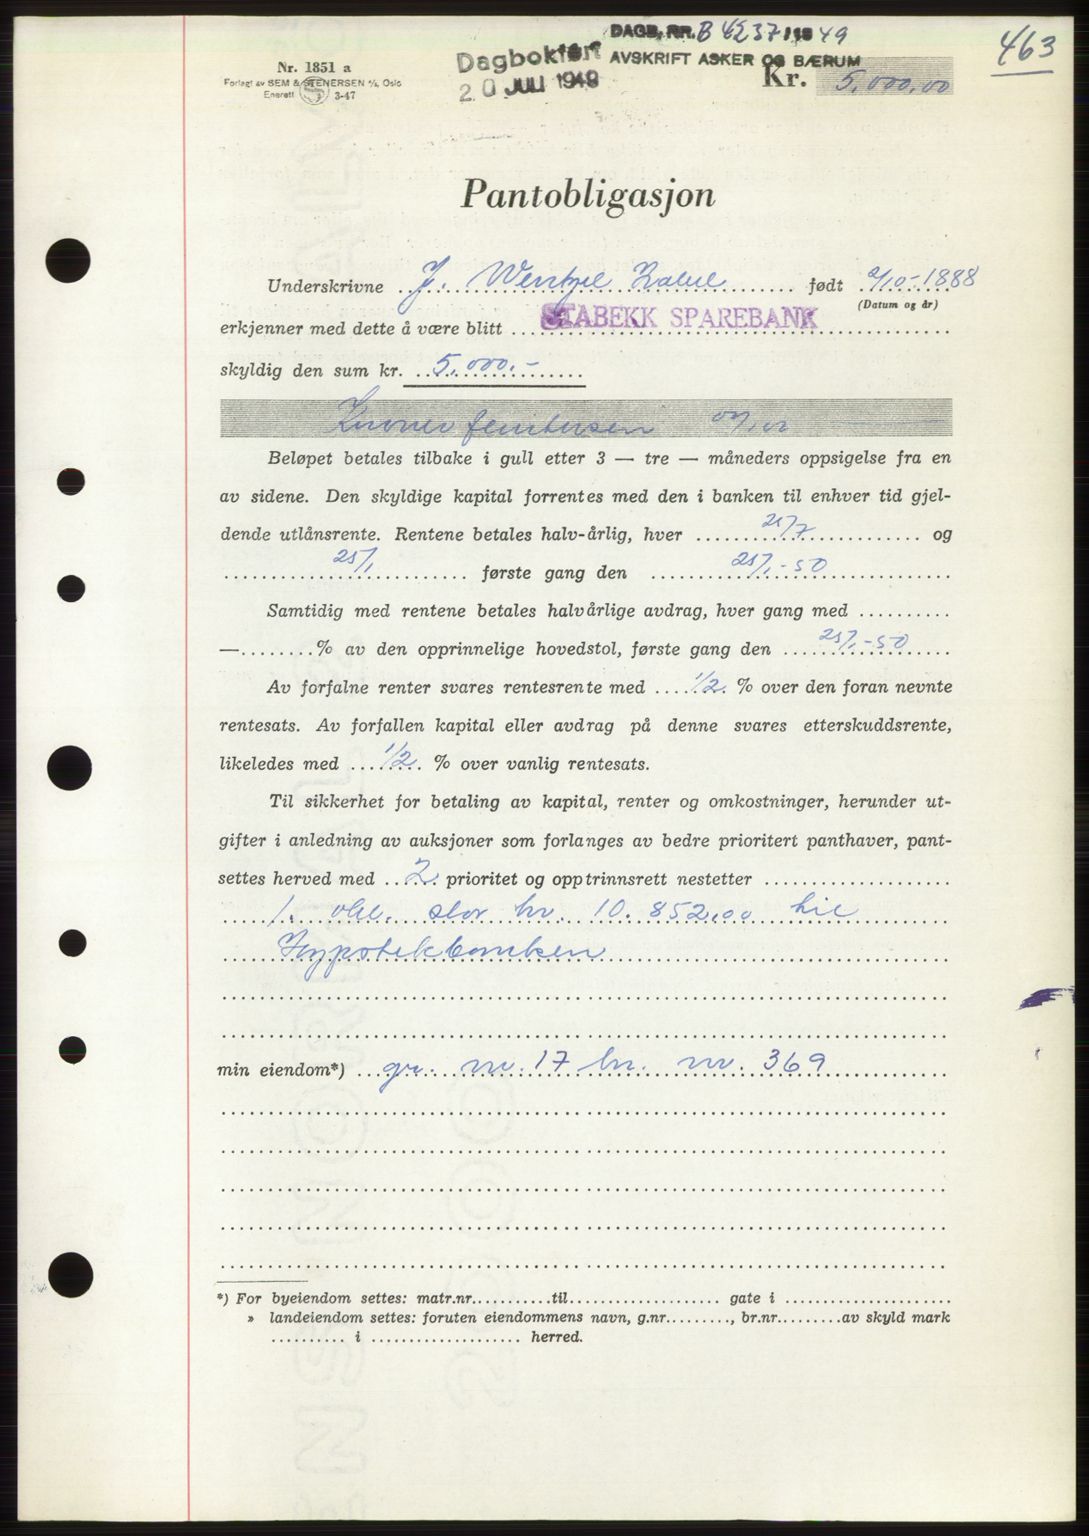 463
DAGB. NR. B 4237/19 49
AVSKRIFT ASKER OG BÆRUM
Dagbokført
20 JULI 1949
Nr. 1851 a
Forlagt av SEM & STENERSEN A/S, Oslo
Enerett 3-47
Kr. 5.000,00
Pantobligasjon
Underskrivne J. Wentzel født 2/10-1888
(Datum og år)
erkjenner med dette å være blitt STABEKK SPAREBANK
skyldig den sum kr. 5.000.-
Kroner femtusen 00/00
Beløpet betales tilbake i gull etter 3 — tre — måneders oppsigelse fra en
av sidene. Den skyldige kapital forrentes med den i banken til enhver tid gjel-
dende utlånsrente. Rentene betales halv-årlig, hver 25/7 og
25/1 første gang den 25/1-50
Samtidig med rentene betales halvårlige avdrag, hver gang med
—% av den opprinnelige hovedstol, første gang den 25/1-50
Av forfalne renter svares rentesrente med 1/2 % over den foran nevnte
rentesats. Av forfallen kapital eller avdrag på denne svares etterskuddsrente,
likeledes med 1/2 % over vanlig rentesats.
Til sikkerhet for betaling av kapital, renter og omkostninger, herunder ut-
gifter i anledning av auksjoner som forlanges av bedre prioritert panthaver, pant-
settes herved med 2 prioritet og opptrinnsrett nestetter
1. obl. stor kr. 10.852,00 til
Hypotekbanken
min eiendom*) gr. nr. 17 br. nr. 369
*) For byeiendom settes: matr.nr...........til...................... gate i ........................
» landeiendom settes: foruten eiendommens navn, g.nr.........., br.nr..........av skyld mark
........... i ...................... herred.